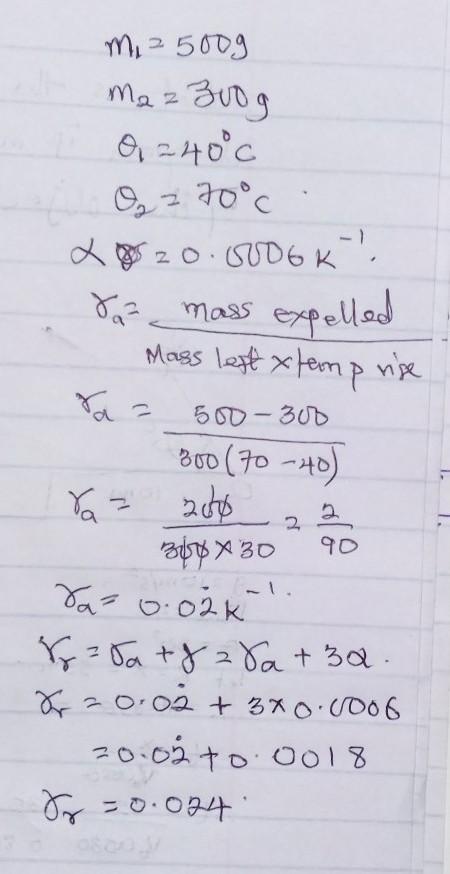 m₁ = 500g
m₂ = 300g
θ₁ = 40°C
θ₂ = 70°C
α = 0.0006 K⁻¹.
γₐ = mass expelled
Mass left × temp rise
γₐ = 500 - 300
300(70 - 40)
γₐ = 200 = 2
300 × 30 90
γₐ = 0.02̇ K⁻¹.
γᵣ = γₐ + γ = γₐ + 3α.
γᵣ = 0.02̇ + 3×0.0006
= 0.02̇ + 0.0018
γᵣ = 0.024